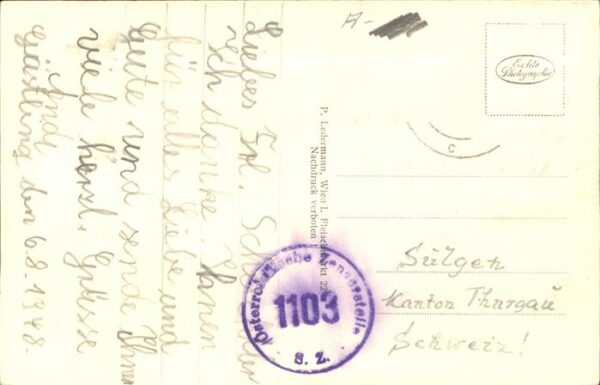 Liebes Frl.
Ich danke Ihnen
für alles Liebe und
Gute und sende Ihnen
viele herzl. Grüsse
Gästling den 6.8.1948.
A-
Echte
Photographie
P. Ledermann, Wien I, Fleischmarkt 22
Nachdruck verboten
Österreichische Zensurstelle
1103
S. Z.
Sulgen
Kanton Thurgau
Schweiz!